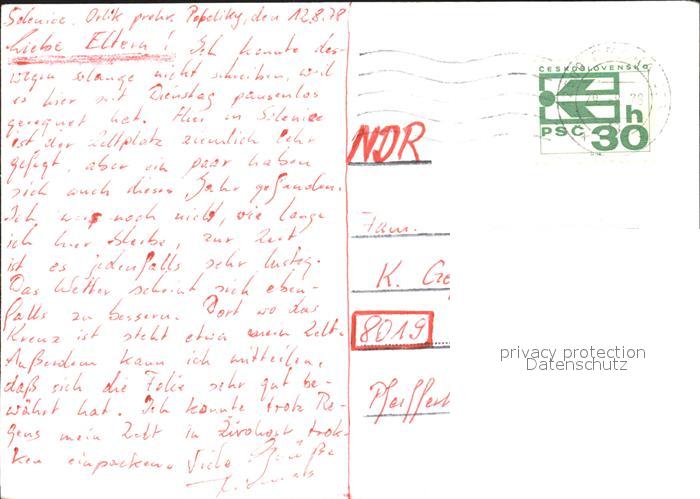 Solenice. Orlík přehr. Popelíky, den 12.8.78
Liebe Eltern! Ich konnte des-
wegen solange nicht schreiben, weil
es hier seit Dienstag pausenlos
geregnet hat. Hier in Silenice
ist der Zeltplatz ziemlich sehr
gefegt, aber ein paar haben
sich auch dieses Jahr gefunden.
Ich weiß noch nicht, wie lange
ich hier bleibe, zur Zeit
ist es jedenfalls sehr lustig.
Das Wetter scheint sich eben-
falls zu bessern. Dort wo das
Kreuz ist steht etwa mein Zelt.
Außerdem kann ich mitteilen,
daß sich die Folie sehr gut be-
währt hat. Ich konnte trotz Re-
gens mein Zelt in Živohošť trok-
ken einpacken. Viele Grüße
ČESKOSLOVENSKO
h
PSČ 30
NDR
Fam.
K.
8019
privacy protection
Datenschutz